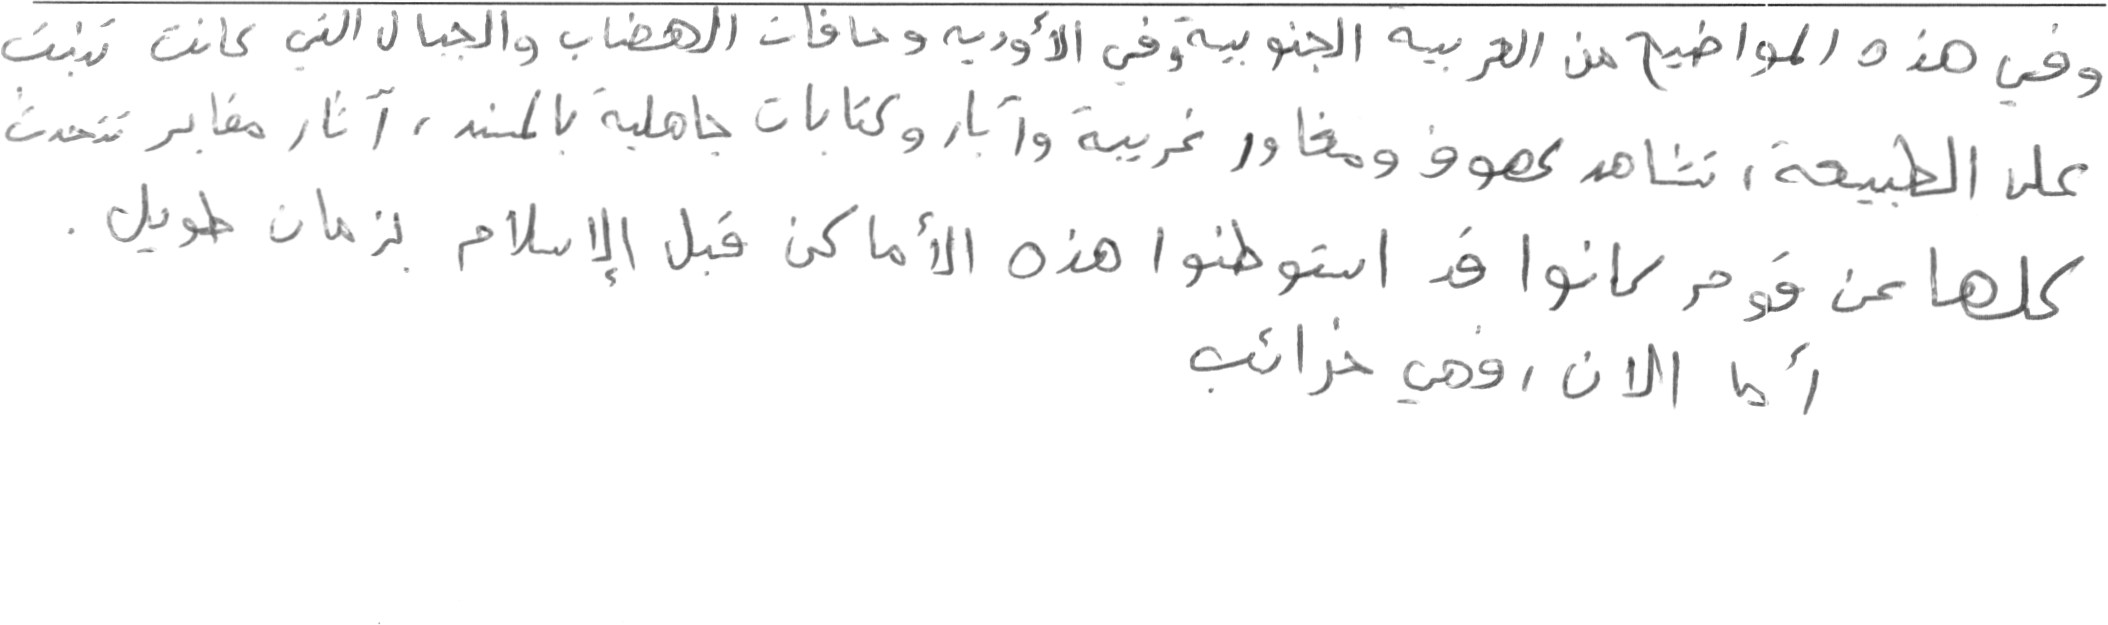 وفي هذه المواضيع من العربية الجنوبية وفي الأوديه وحافات الهضاب والجبال التي كانت تنبت
على الطبيعة، تشاهد كهوف ومغاور غريبة وآبار وكتابات جاهلية بالمسند، آثار مقابر تتحدث
كلها عن قوم كانوا قد استوطنوا هذه الأماكن قبل الإسلام بزمان طويل.
أما الان، فهي خرائب